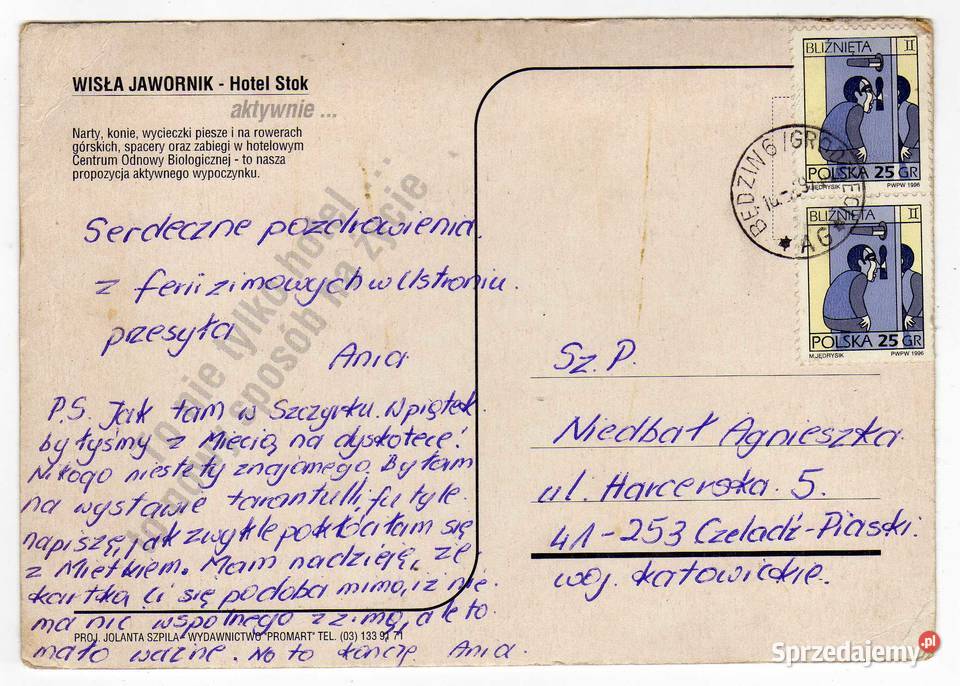 WISŁA JAWORNIK - Hotel Stok
aktywnie ...
Narty, konie, wycieczki piesze i na rowerach
górskich, spacery oraz zabiegi w hotelowym
Centrum Odnowy Biologicznej - to nasza
propozycja aktywnego wypoczynku.
To nie tylko hotel ...
to nowy sposób na życie
Serdeczne pozdrowienia
z ferii zimowych w Ustroniu.
przesyła
Ania
P.S. Jak tam w Szczyrku. W piątek
byłyśmy z Miecią na dyskotece!
Nikogo niestety znajomego. Byłam
na wystawie tarantulli, fu tyle
napiszę, jak zwykle pokłóciłam się
z Mietkiem. Mam nadzieję, że
kartka Ci się podoba mimo, iż nie
ma nic wspólnego z zimą, ale to
mało ważne. No to kończę Ania.
PROJ. JOLANTA SZPILA - WYDAWNICTWO "PROMART" TEL. (03) 133 91 71
BLIŹNIĘTA II
POLSKA 25 GR
M.JĘDRYSIK PWPW 1996
BLIŹNIĘTA II
POLSKA 25 GR
M.JĘDRYSIK PWPW 1996
BĘDZIN 6/GRODZIEC
AG
Sz. P.
Niedbał Agnieszka
ul. Harcerska 5.
41-253 Czeladź-Piaski.
woj. katowickie.
Sprzedajemy.pl